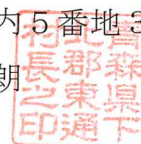 内５番地３
朗
青森県下
北郡東通
村長之印